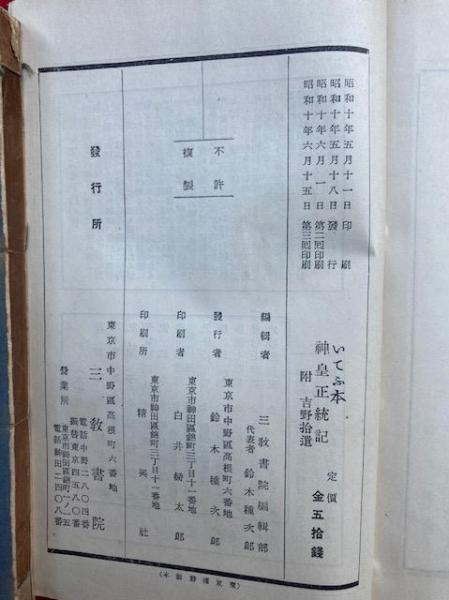 昭和十年五月十一日 印刷
昭和十年五月十八日 發行
昭和十年六月一日 第二回印刷
昭和十年六月十五日 第三回印刷
いてふ本
神皇正統記
附 吉野拾遺
定價
金五拾錢
不許
複製
編輯者 三教書院編輯部
代表者 鈴木種次郎
東京市中野區高根町六番地
發行者 鈴木種次郎
東京市神田區錦町三丁目十一番地
印刷者 白井 太郎
東京市神田區錦町三丁目十一番地
印刷所 精興社
發行所
東京市中野區高根町六番地
三教書院
電話中野二八〇四番
振替東京四五八〇番
營業所
東京市神田區錦町一ノ五
電話神田二四〇八番